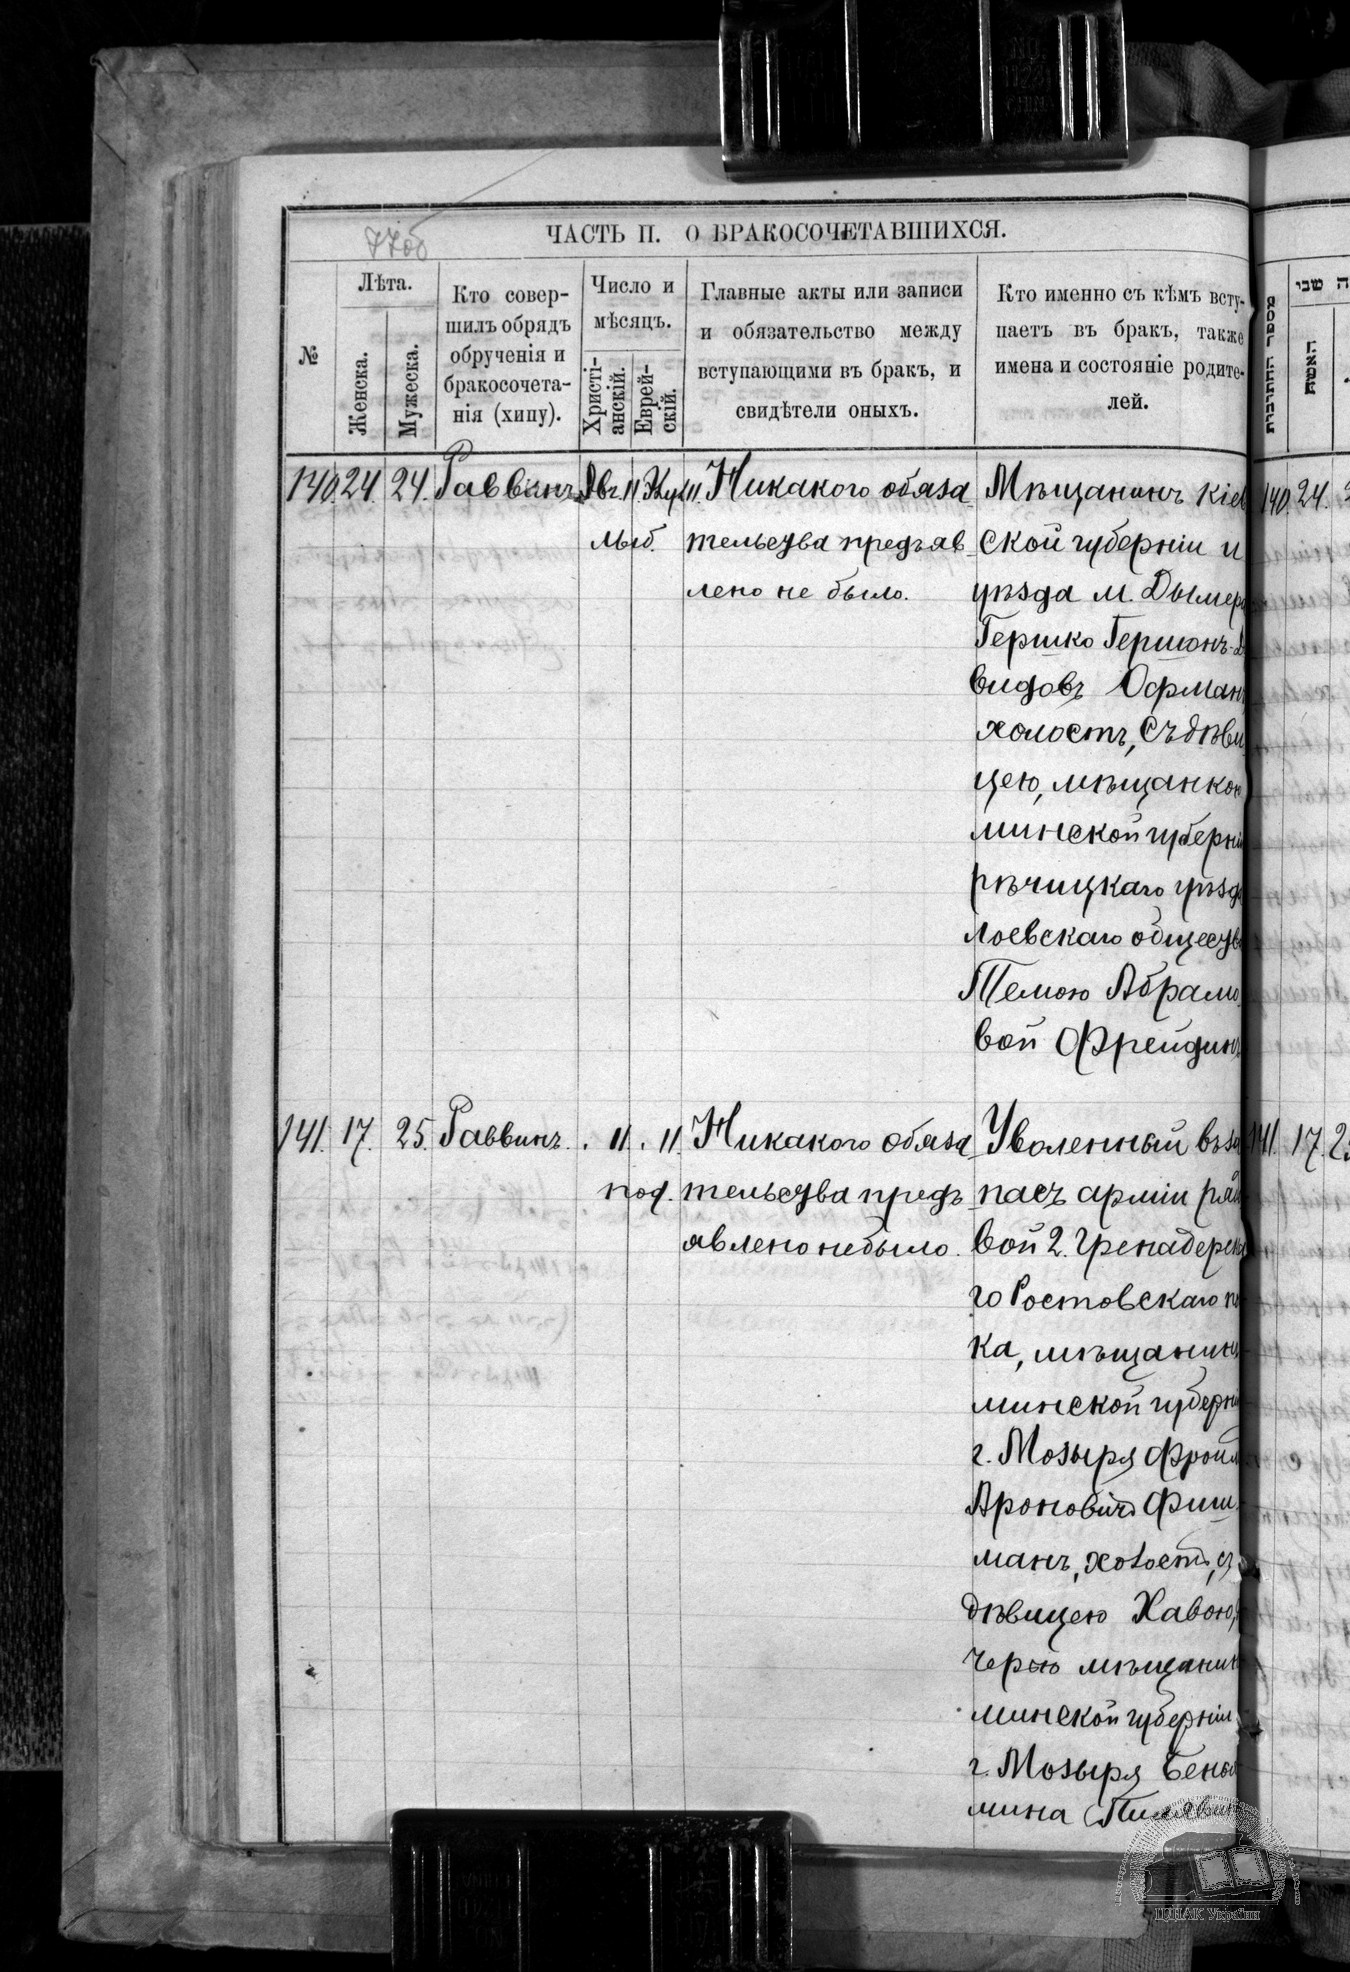 77об
ЧАСТЬ II. О БРАКОСОЧЕТАВШИХСЯ.
№
Лѣта.
Женска.
Мужеска.
Кто совер-
шилъ обрядъ
обрученія и
бракосочета-
нія (хипу).
Число и
мѣсяцъ.
Христі-
анскій.
Еврей-
скій.
Главные акты или записи
и обязательство между
вступающими въ бракъ, и
свидѣтели оныхъ.
Кто именно съ кѣмъ всту-
паетъ въ бракъ, также
имена и состояніе родите-
лей.
140. 24. 24. Раввинъ
Никакого обяза
тельства предъяв
лено не было.
Мѣщанинъ Кіев
ской губерніи и
уѣзда м. Дымера
Гершко Гершонъ-Д
видовъ Офман
холостъ, съ дѣви
цею, мѣщанкою
минской губерніи
рѣчицкаго уѣзда
лоевскаго общества
Темою Абрамо
вой Фрейдинъ
141. 17. 25. Раввинъ. 11. 11.
Никакого обяза
тельства предъ
явлено не было.
Уволенный въ за
пасъ арміи ряд
вой 2. Гренадерска
го Ростовскаго пол
ка, мѣщанинъ
минской губерніи
г. Мозыря Фроим
Ароновичъ Фиш
манъ, холостъ, съ
дѣвицею Хавою, д
черью мѣщанин
минской губерніи
г. Мозыря Бенья
мина Пилявин
מספר החתרבות
האשה
שבי
140. 24.
141. 17. 25
ЦДІАК України